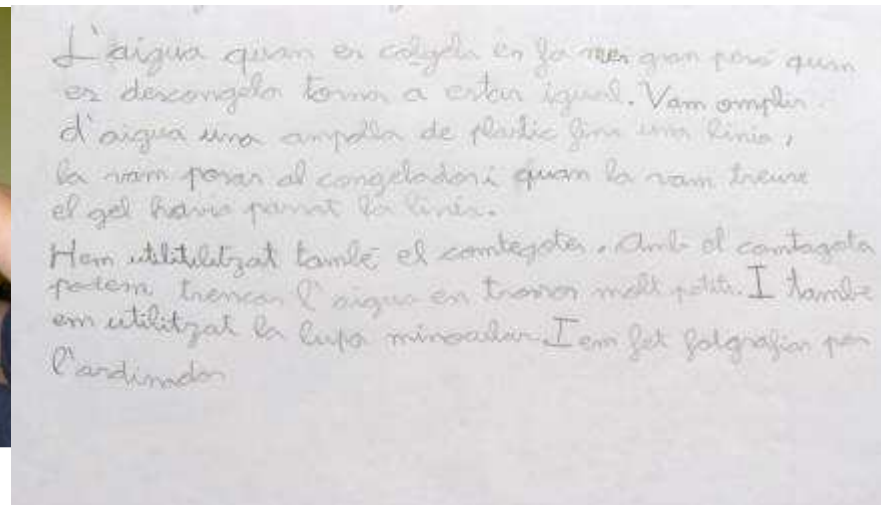 L'aigua quan es colgela es fa mes gran pero quan
es descongela torna a estar igual. Vam omplir
d'aigua una ampolla de plastic fins una linia,
la vam posar al congelador i quan la vam treure
el gel havia passat la linia.
Hem utilitilitzat també el comtegotes. Amb el comtagota
podem trencar l'aigua en trossos molt petits. I tambe
em utilitzat la lupa minocular. I em fet fotgrafies per
l'ardinador